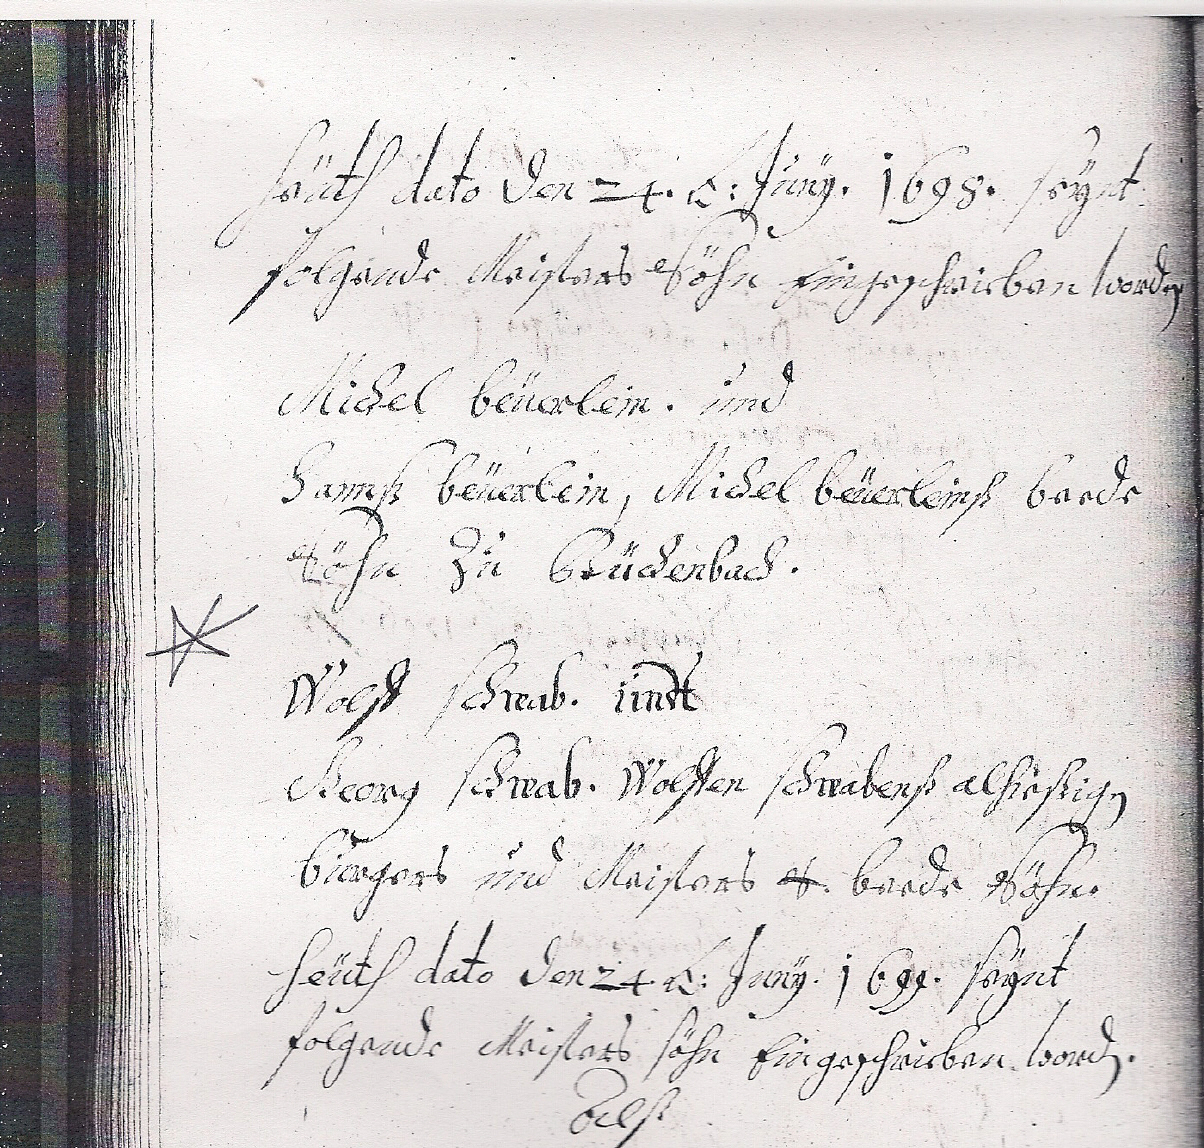 Heüth dato den 24. t: Juny. 1698. seynt
folgende Meisters Söhn Eingeschrieben worden
Michel beüerlein. und
Hannß beüerlein, Michel beüerleinß beede
Söhn Zu Büchenbach.
Wolff schwab. undt
Georg schwab. Wolffen schwabenß alhießigen
burgers und Meisters beede Söhn.
Heüth dato den 24. t: Juny. 1699. seynt
folgende Meisters söhn Eingeschrieben word.
Alß